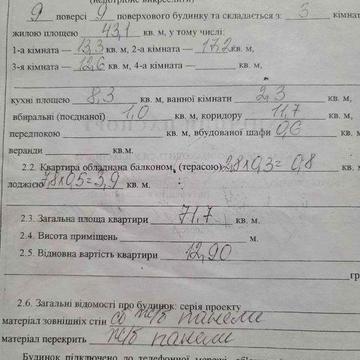 (непотрібне викреслити)
9 поверсі 9 поверхового будинку та складається з: 3 кімнат
жилою площею 43,1 кв. м, у тому числі:
1-а кімната — 13,3 кв. м, 2-а кімната — 17,2 кв. м,
3-я кімната — 12,6 кв. м, 4-а кімната — кв. м,
кухні площею 8,3 кв. м, ванної кімнати 2,3
вбиральні (поєднаної) 1,0 кв. м, коридору 11,7
передпокою кв. м, вбудованої шафи 0,6
веранди кв.м.
2.2. Квартира обладнана балконом, (терасою) 2,8х0,3= 0,8 кв. м,
лоджією 7,8х0,5=3,9 кв. м.
2.3. Загальна площа квартири 71,7 кв. м.
2.4. Висота приміщень м.
2.5. Відновна вартість квартири 12,90
гр
2.6. Загальні відомості про будинок: серія проекту
матеріал зовнішніх стін ж/б панели
матеріал перекрить ж/б панели
Будинок підключено до телефонної мережі